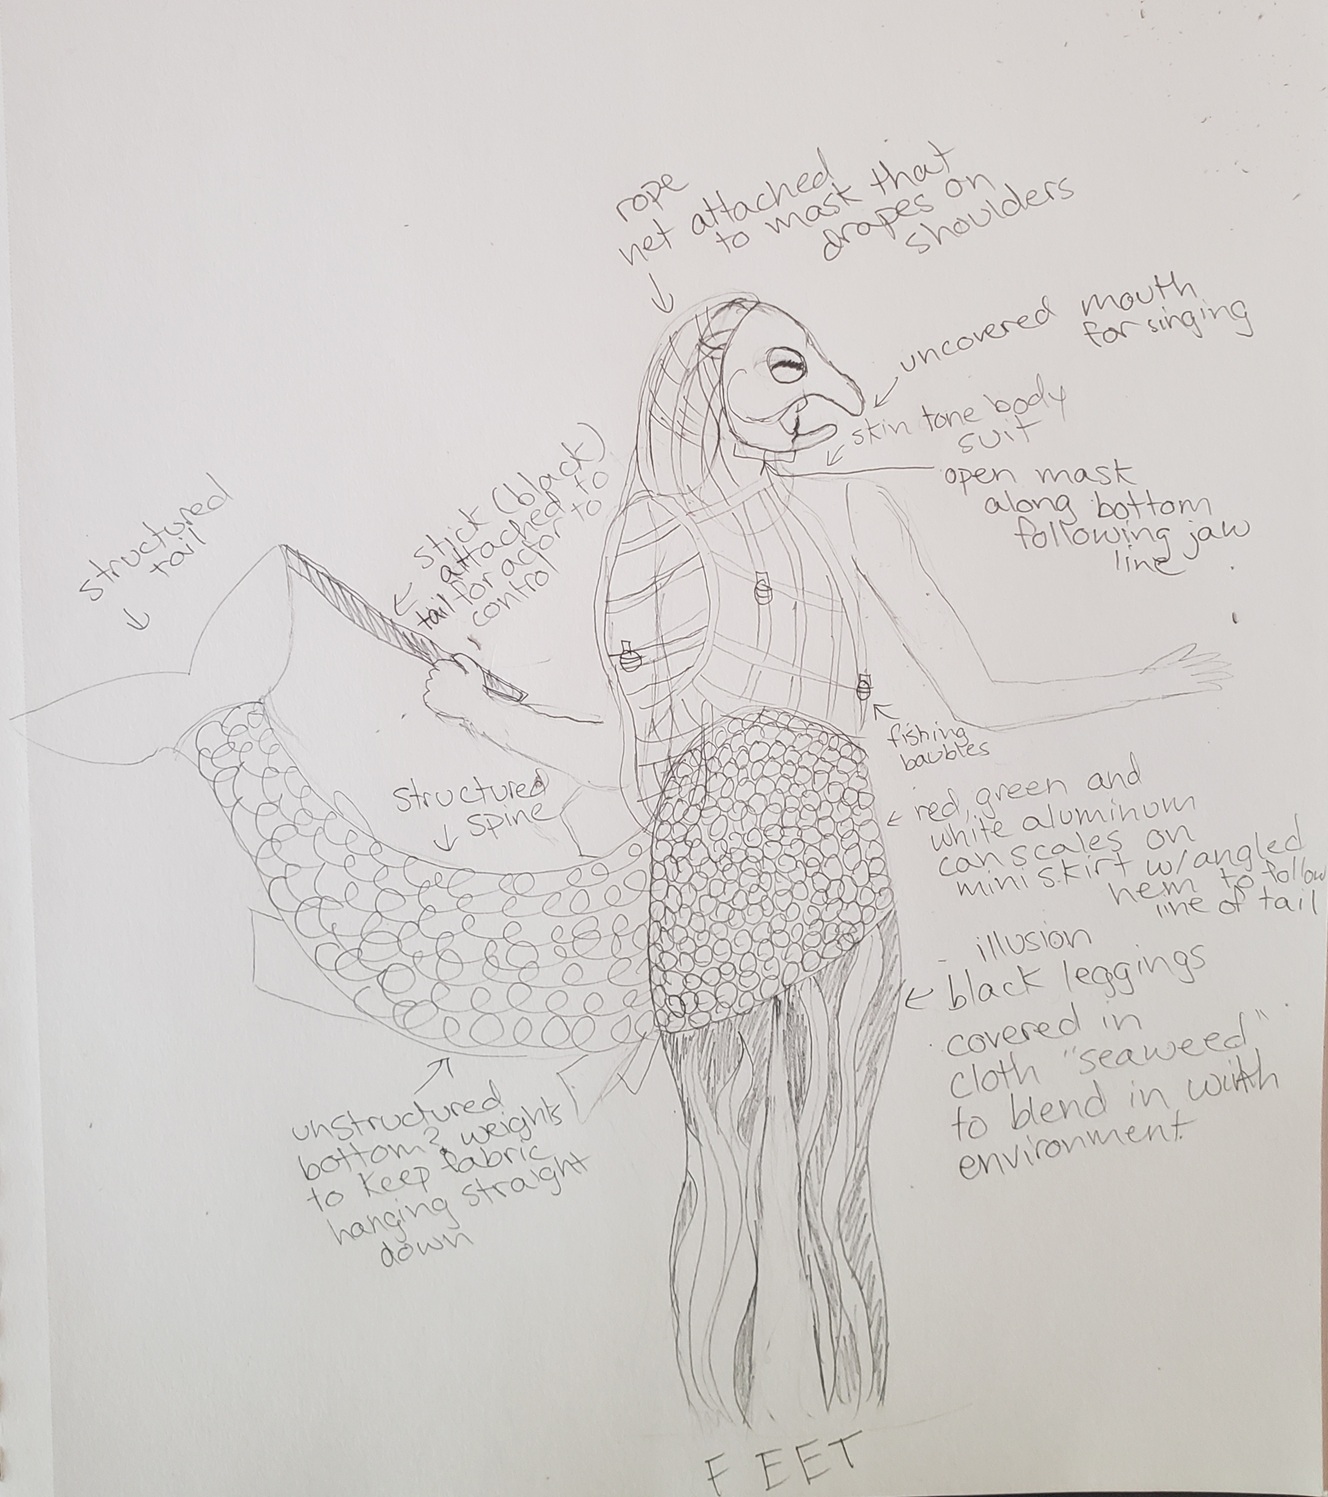 rope
net attached
to mask that
drapes on
shoulders
uncovered mouth
for singing
skin tone body
suit
open mask
along bottom
following jaw
line
structured
tail
stick (black)
attached to
tail for actor to
control
fishing
baubles
structured
spine
red, green and
white aluminum
can scales on
mini skirt w/angled
hem to follow
line of tail
illusion
black leggings
covered in
cloth "seaweed"
to blend in with
environment
unstructured
bottom? weights
to keep fabric
hanging straight
down
FEET